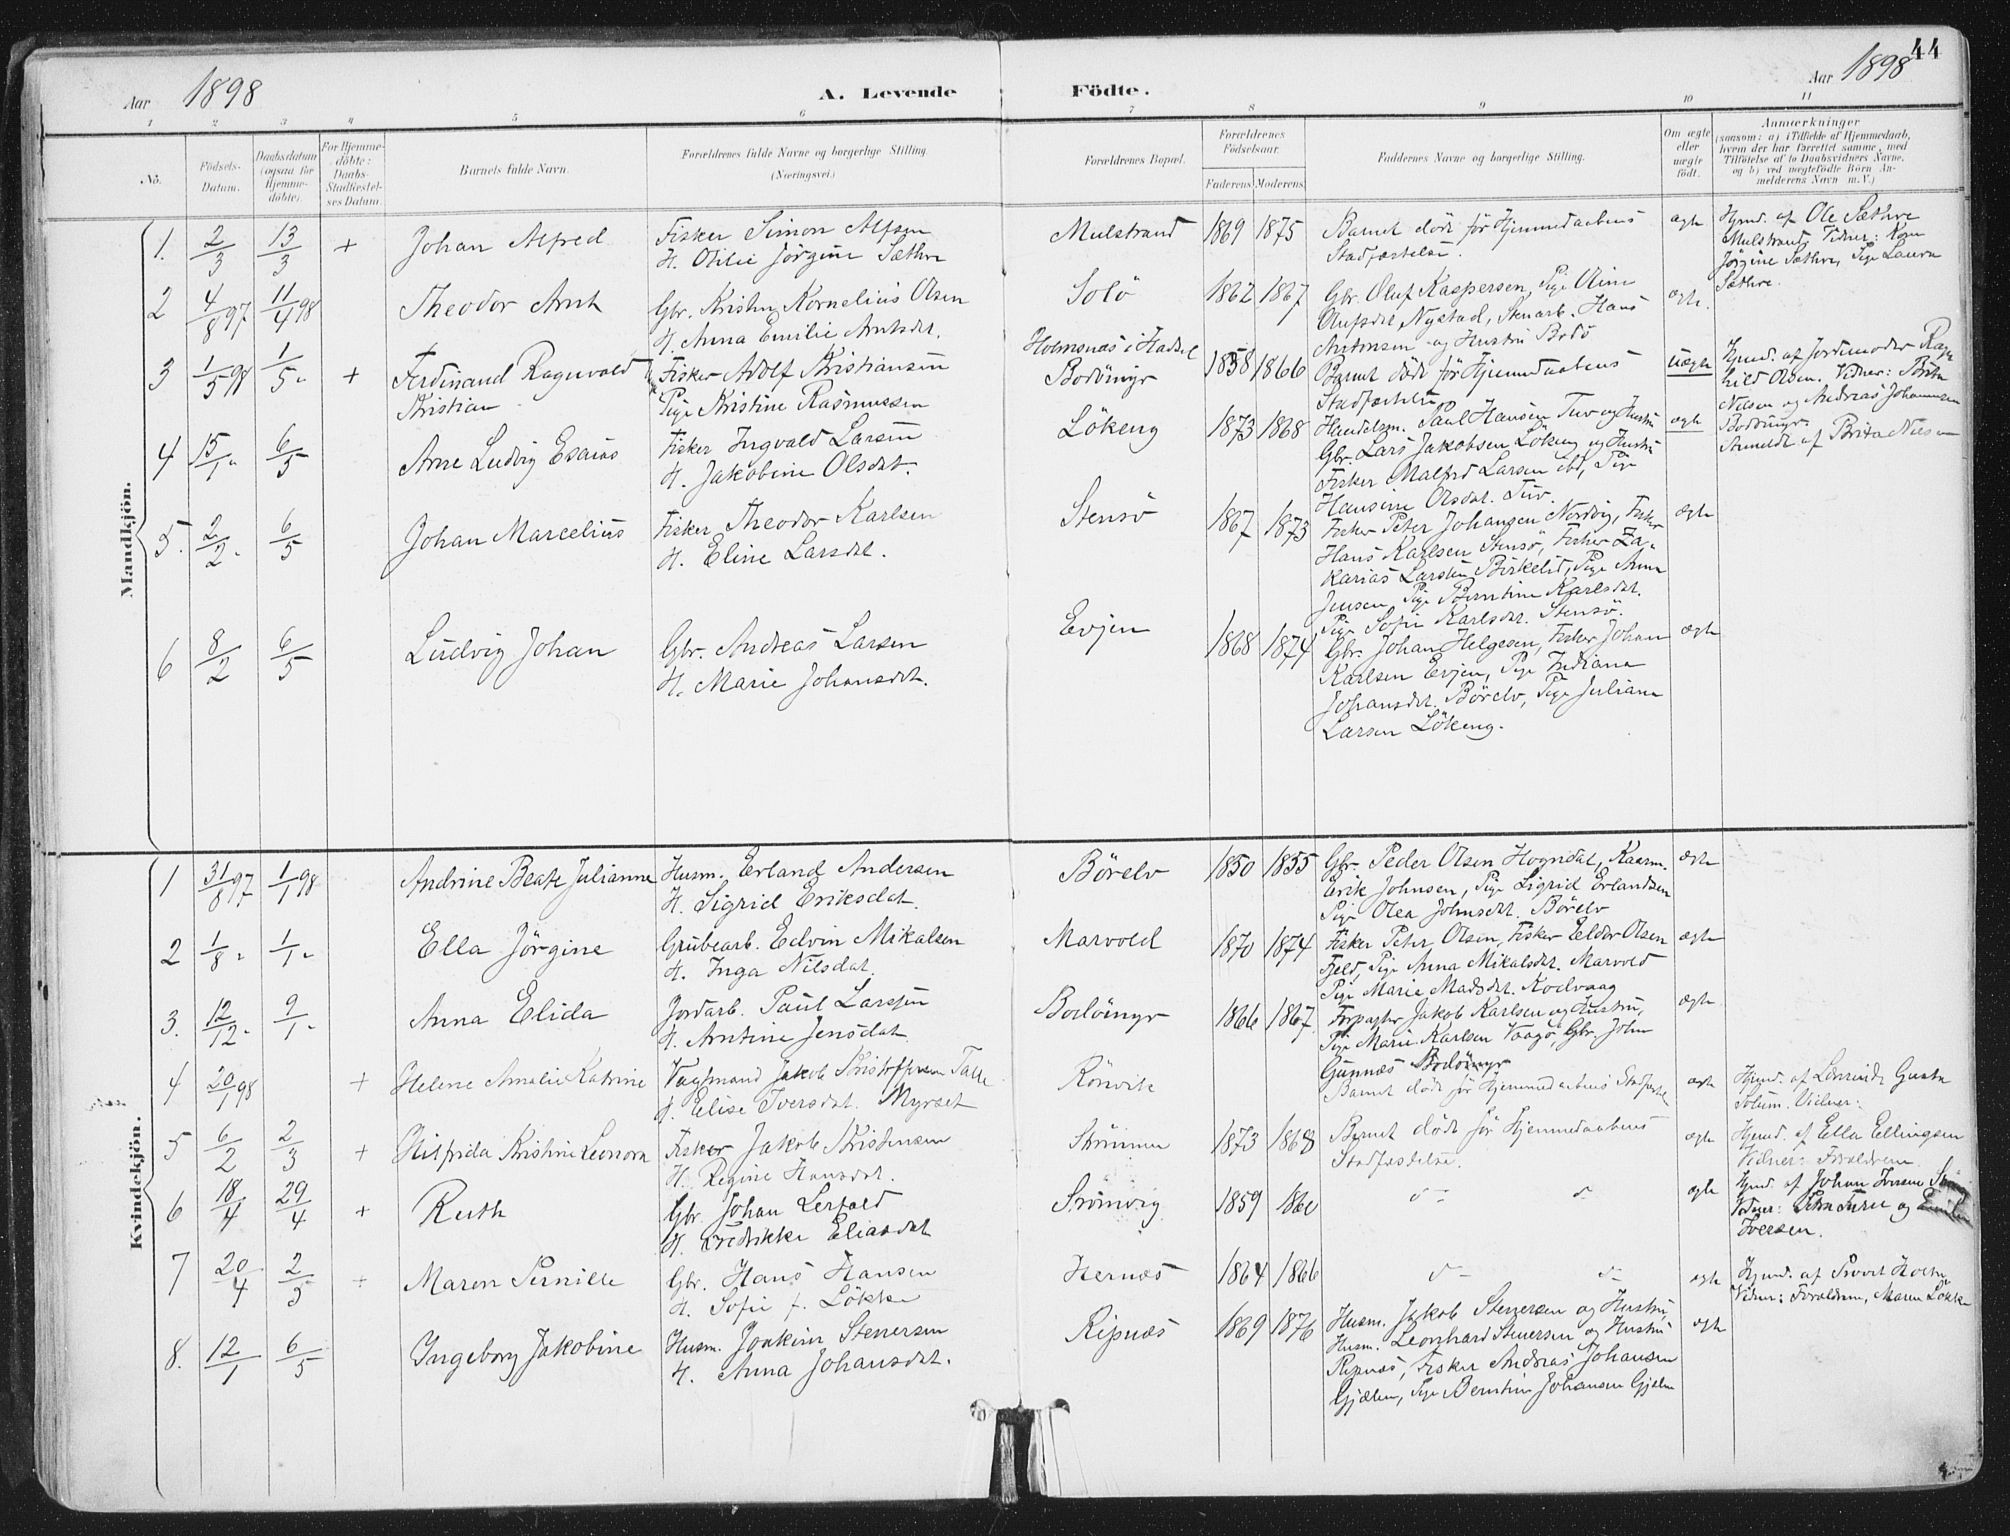 44
Aar 1898
A. Levende Födte.
Aar 1898
1 2 3 4 5 6 7 8 9 10 11
No.
Födsels-
Datum.
Daabsdatum
(ogsaa for
Hjemme-
döbte).
For Hjemme-
döbte:
Daabs-
Stadfæstel-
ses Datum.
Barnets fulde Navn.
Forældrenes fulde Navne og borgerlige Stilling
(Næringsvei.)
Forældrenes Bopæl.
Forældrenes
Födselsaar.
Faderens Moderens
Faddernes Navne og borgerlige Stilling.
Om ægte
eller
uægte
födt.
Anmærkninger
(saasom: a) i Tilfælde af Hjemmedaab,
hvem der har forrettet samme, med
Tilföielse af to Daabsvidners Navne,
og b) ved uægtefödte Börn An-
melderens Navn m. V.)
Mandkjön.
1. 2/3 13/3 + Johan Alfred
Fisker Simon Alfsen
H. Otilie Jörgine Sæthre
Mulstrand 1869 1875
Barnet död för Hjemmedaabens
Stadfæstelse.
ægte
Hjmd. af Ole Sæthre
Mulstrand, Vidner: Kone
Jörgine Sæthre, Pige Laura
Sæthre.
2 4/8 97 11/4 98 Theodor Arnt
Gbr. Kristen Kornelius Olsen
H. Anna Emilie Arntsdat.
Solö 1862 1867
Gbr. Oluf Kaspersen, Pige Oline
Olufsdat Nystad, Stenarb. Hans
Antonsen og Hustru Bodö
ægte.
3 1/5 98 1/5 " + Ferdinand Ragnvald
Kristian
Fisker Adolf Kristiansen
Pige Kristine Rasmussen
Holmsnæs i Hadsel
Bodöingr 1858 1866
Barnet död för Hjemmedaabens
Stadfæstelse
Uægte
Hjmd. af Jordemoder Ragn
hild Olsen. Vidner: Brita
Nilsen og Andreas Johannesen
Bodöingr
Anmeldt af Brita Nilsen
4 15/1 " 6/5 Arne Ludvig Esaias
Fisker Ingvald Larsen
H. Jakobine Olsdat.
Lökeng 1873 1868
Handelsm. Paul Hansen Tuv og Hustru
Gbr. Lars Jakobsen Lökeng og Hustru
Fisker Malfred Larsen ibd, Pige
Hansine Olsdat. Tuv.
ægte
5. 2/2 " 6/5 Johan Marcelius
Fisker Theodor Karlsen
H. Eline Larsdat.
Stensö 1867 1873
Fisker Peter Johansen Nordvig, Fisker
Hans Karlsen Stensö, Fisker Za-
karias Larsen Birkelid, Pige Anna
Jensen, Pige Berntine Karlsdat.
Pige Sofie Karlsdat. Stensö.
ægte
6 8/2 6/5 Ludvig Johan
Gbr. Andreas Larsen
H. Marie Johansdat.
Evjen 1868 1874
Gbr. Johan Helgesen, Fisker Johan
Karlsen Evjen, Pige Indiana
Johansdat. Börelv, Pige Juliane
Larsen Lökeng.
ægte
Kvindekjön.
1 31/8 97 1/1 98 Andrine Beate Julianne
Husm. Erland Andersen
H. Sigrid Eriksdat.
Börelv 1850 1855
Gbr. Peder Olsen Hogndal, Kaarm.
Erik Johnsen, Pige Sigrid Erlandsen
Pige Olea Johnsdat. Börelv
ægte
2 1/8 " 1/1 " Ella Jörgine
Grubearb. Edvin Mikalsen
H. Inga Nilsdat.
Marvold 1870 1874
Fisker Peter Olsen, Fisker Eldor Olsen
Fjeld, Pige Anna Mikalsdat. Marvold
Pige Marie Madsdat. Kodvaag
ægte
3. 12/12 " 9/1 " Anna Elida
Jordarb. Paul Larssen
H. Arntine Jensdat.
Bodöingr 1866 1867
Forpagter Jakob Karlsen og Hustru,
Pige Marie Karlsen Vaagö, Gbr. John
Gunnæs Bodöingr
ægte
4 20/1 98 + Helene Amalie Katrine
Vagtmand Jakob Kristoffersen
H. Elise Iversdat. Myrset
Rönvik
Barnet död för Hjemmedaabens Stadfæstel
ægte
Hjmd. af
Solum. Vidner:
5 6/2 2/3 + Hilfrida Kristine Leonora
Fisker Jakob Kristensen
H. Regine Hansdat.
Strömmen 1873 1868
Barnet död för Hjemmedaabens
Stadfæstelse.
ægte
Hjmd. af Ella Ellingsen
Vidner: Forældrene
6 18/4 29/4 + Ruth
Gbr. Johan Lerfald
H. Fredrikke Eliasdat
Strömvig 1859 1860
do do
ægte
Hjmd. af Johan Iversen
Vidner: og
Iversen.
7 20/4 2/5 + Maren Pernille
Gbr. Hans Hansen
H. Sofie f. Lökke
Hernæs 1864 1866
do do
ægte
Hjmd. af Sivert Holm
Vidner: Forældrene, Maren Lökke
8. 12/1 6/5 Ingeborg Jakobine
Husm. Joakim Stenersen
H. Anna Johansdat.
Ripnæs 1869 1876
Husm. Jakob Stenersen og Hustru,
Husm. Leonhard Stenersen og Hustru
Ripnæs, Fisker Andreas Johansen
Gjælen, Pige Berntine Johansen Gjælen
ægte